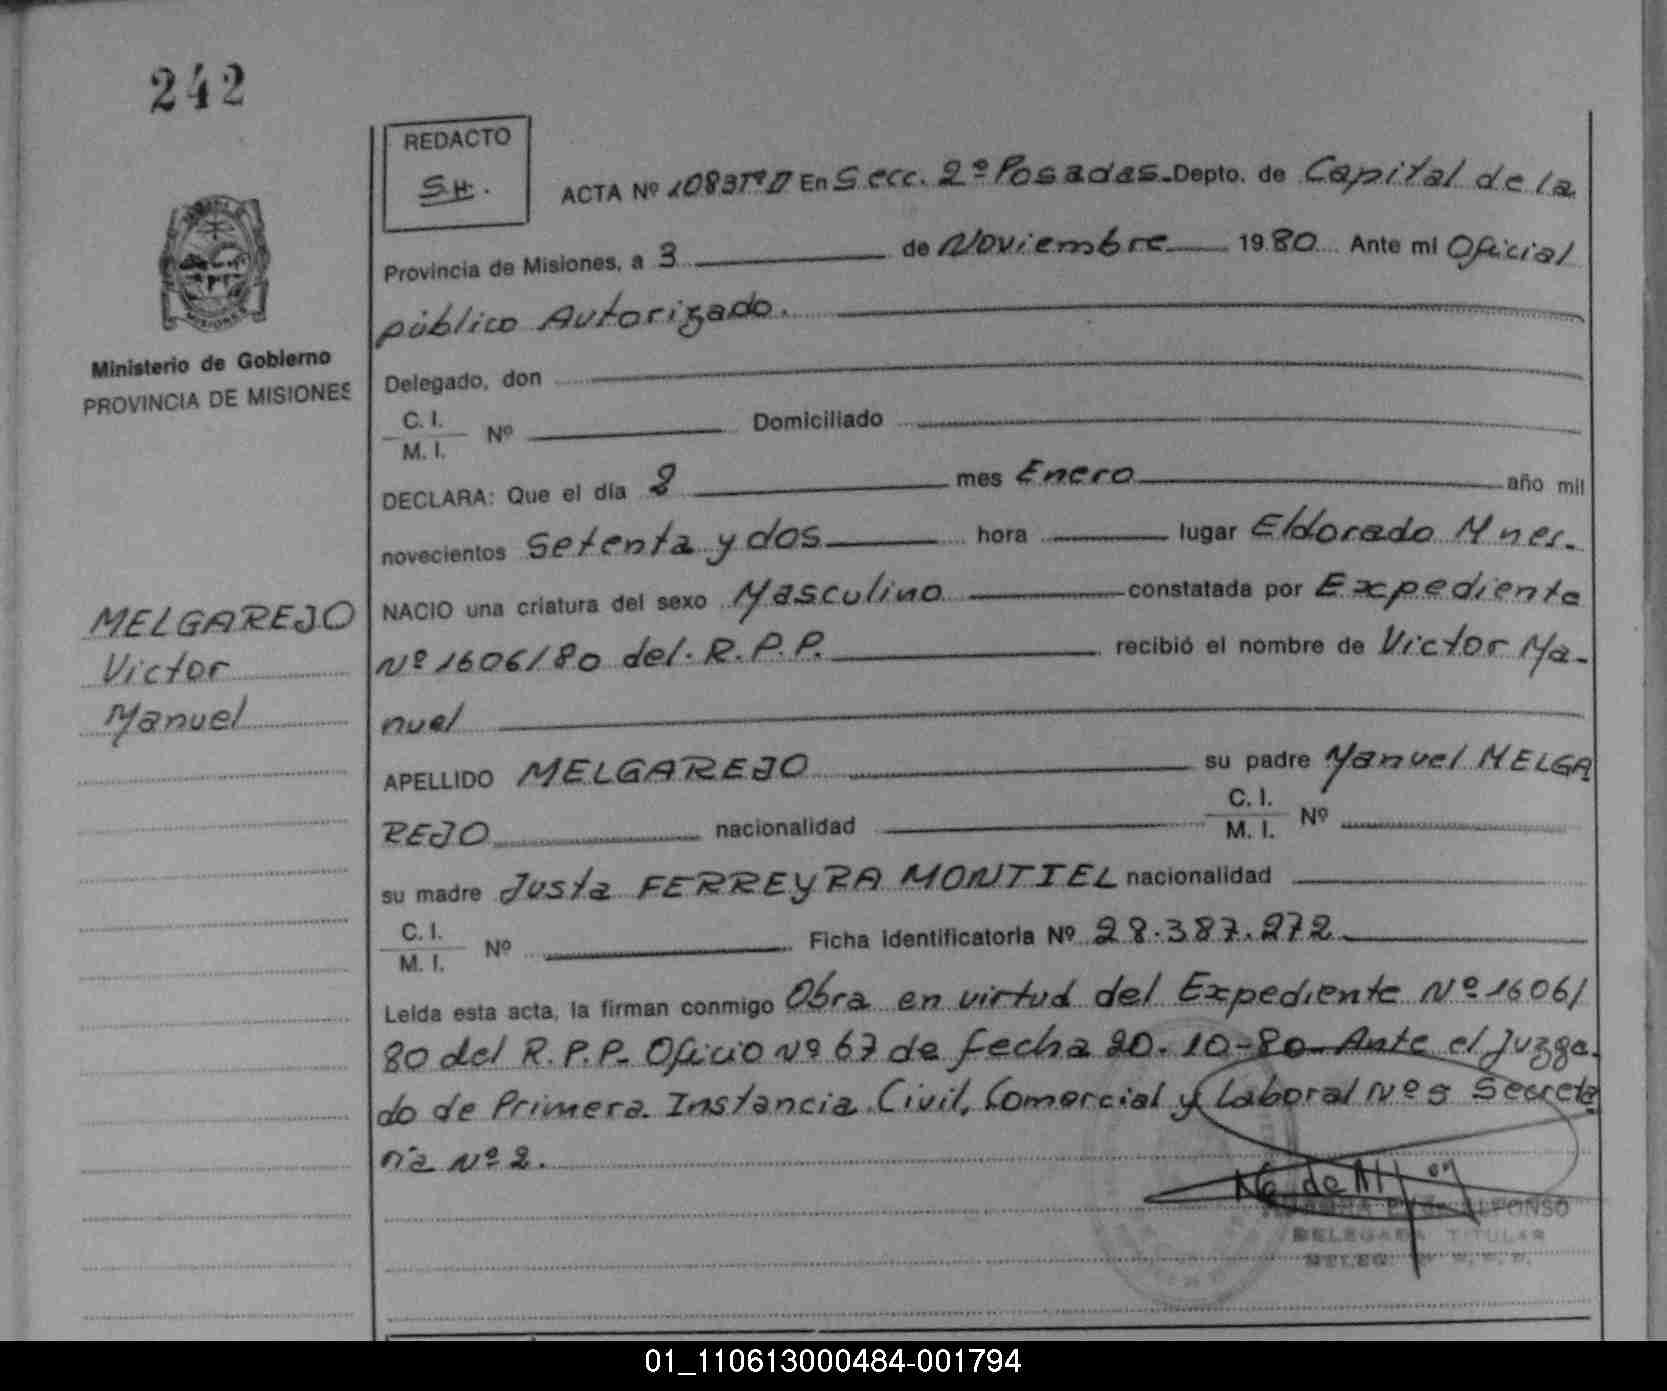 242
REDACTO
S.H.
ACTA Nº 1083 Tº D En Secc. 2º Posadas. Depto. de Capital de la
Provincia de Misiones, a 3 de Noviembre 1980 Ante mi Oficial
público Autorizado.
Ministerio de Gobierno
PROVINCIA DE MISIONES
Delegado, don
C. I.
M. I. Nº Domiciliado
DECLARA: Que el día 2 mes Enero año mil
novecientos Setenta y dos hora lugar Eldorado Mnes.
NACIO una criatura del sexo Masculino constatada por Expediente
MELGAREJO
Victor
Manuel
Nº 1606/80 del. R.P.P. recibió el nombre de Victor Ma-
nuel
APELLIDO MELGAREJO su padre Manuel MELGA
REJO nacionalidad C. I.
M. I. Nº
su madre Justa FERREYRA MONTIEL nacionalidad
C. I.
M. I. Nº Ficha identificatoria Nº 28.387.272
Leída esta acta, la firman conmigo Obra en virtud del Expediente Nº 1606/
80 del R.P.P. Oficio Nº 67 de fecha 20-10-80 Ante el Juzga-
do de Primera Instancia Civil, Comercial y Laboral Nº 5 Secreta
ría Nº 2.
ALFONSO
DELEGADA TITULAR
01_110613000484-001794